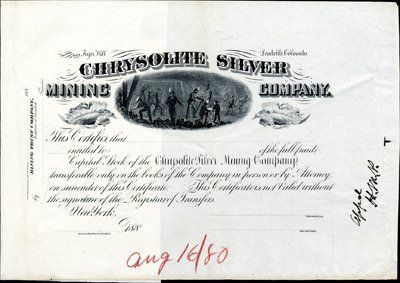 Fryer Hill
Leadville, Colorado.
CHRYSOLITE SILVER
MINING COMPANY.
This Certifies that
entitled to of the full paid
Capital Stock of the Chrysolite Silver Mining Company,
transferable only on the books of the Company in person or by Attorney
on surrender of this Certificate. This Certificate is not Valid without
the signature of the Registrar of Transfers.
New York, 188
PRESIDENT.
SECRETARY.
MINING TRUST COMPANY,
188
by
aug 16/80